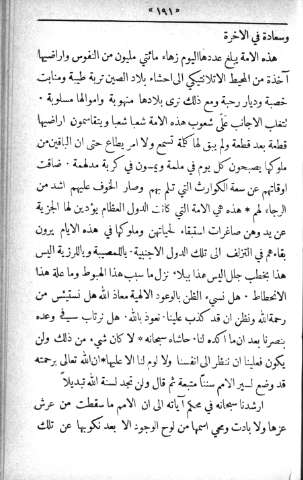 « ١٩١ »
وسعادة في الآخرة
هذه الامة يبلغ عددها اليوم زهاء مائتي مليون من النفوس واراضيها
آخذة من المحيط الاتلانتيكي الى احشاء بلاد الصين تربة طيبة ومنابت
خصبة وديار رحبة ومع ذلك نرى بلادها منهوبة واموالها مسلوبة *
تتغلب الاجانب على شعوب هذه الامة شعبا شعبا ويتقاسمون اراضيها
قطعة بعد قطعة ولم يبق لها كلمة تسمع ولا امر يطاع حتى ان الباقين من
ملوكها يصبحون كل يوم في ملمة ويمسون في كربة مدلهمة * ضاقت
اوقاتهم عن سعة الكوارث التي تلم بهم وصار الخوف عليهم اشد من
الرجاء لهم * هذه هي الامة التي كانت الدول العظام يؤدين لها الجزية
عن يد وهن صاغرات استبقاء لحياتهن وملوكها في هذه الايام يرون
بقاءهم في التزلف الى تلك الدول الاجنبية * ياللمصيبة وياللرزية اليس
هذا بخطب جلل اليس هذا ببلاء نزل ما سبب هذا الهبوط وما علة هذا
الانحطاط * هل نسيء الظن بالوعود الالهية معاذ الله هل نستيئس من
رحمة الله ونظن ان قد كذب علينا * نعوذ بالله * هل نرتاب في وعده
بنصرنا بعد ان ما اكده لنا * حاشاه سبحانه * لا كان شيء من ذلك ولن
يكون فعلينا ان ننظر الى انفسنا ولا لوم لنا الا عليها * ان الله تعالى برحمته
قد وضع لسير الامم سننا متبعة ثم قال ولن تجد لسنة الله تبديلا
ارشدنا سبحانه في محكم آياته الى ان الامم ما سقطت من عرش
عزها ولا بادت ومحي اسمها من لوح الوجود الا بعد نكوبها عن تلك